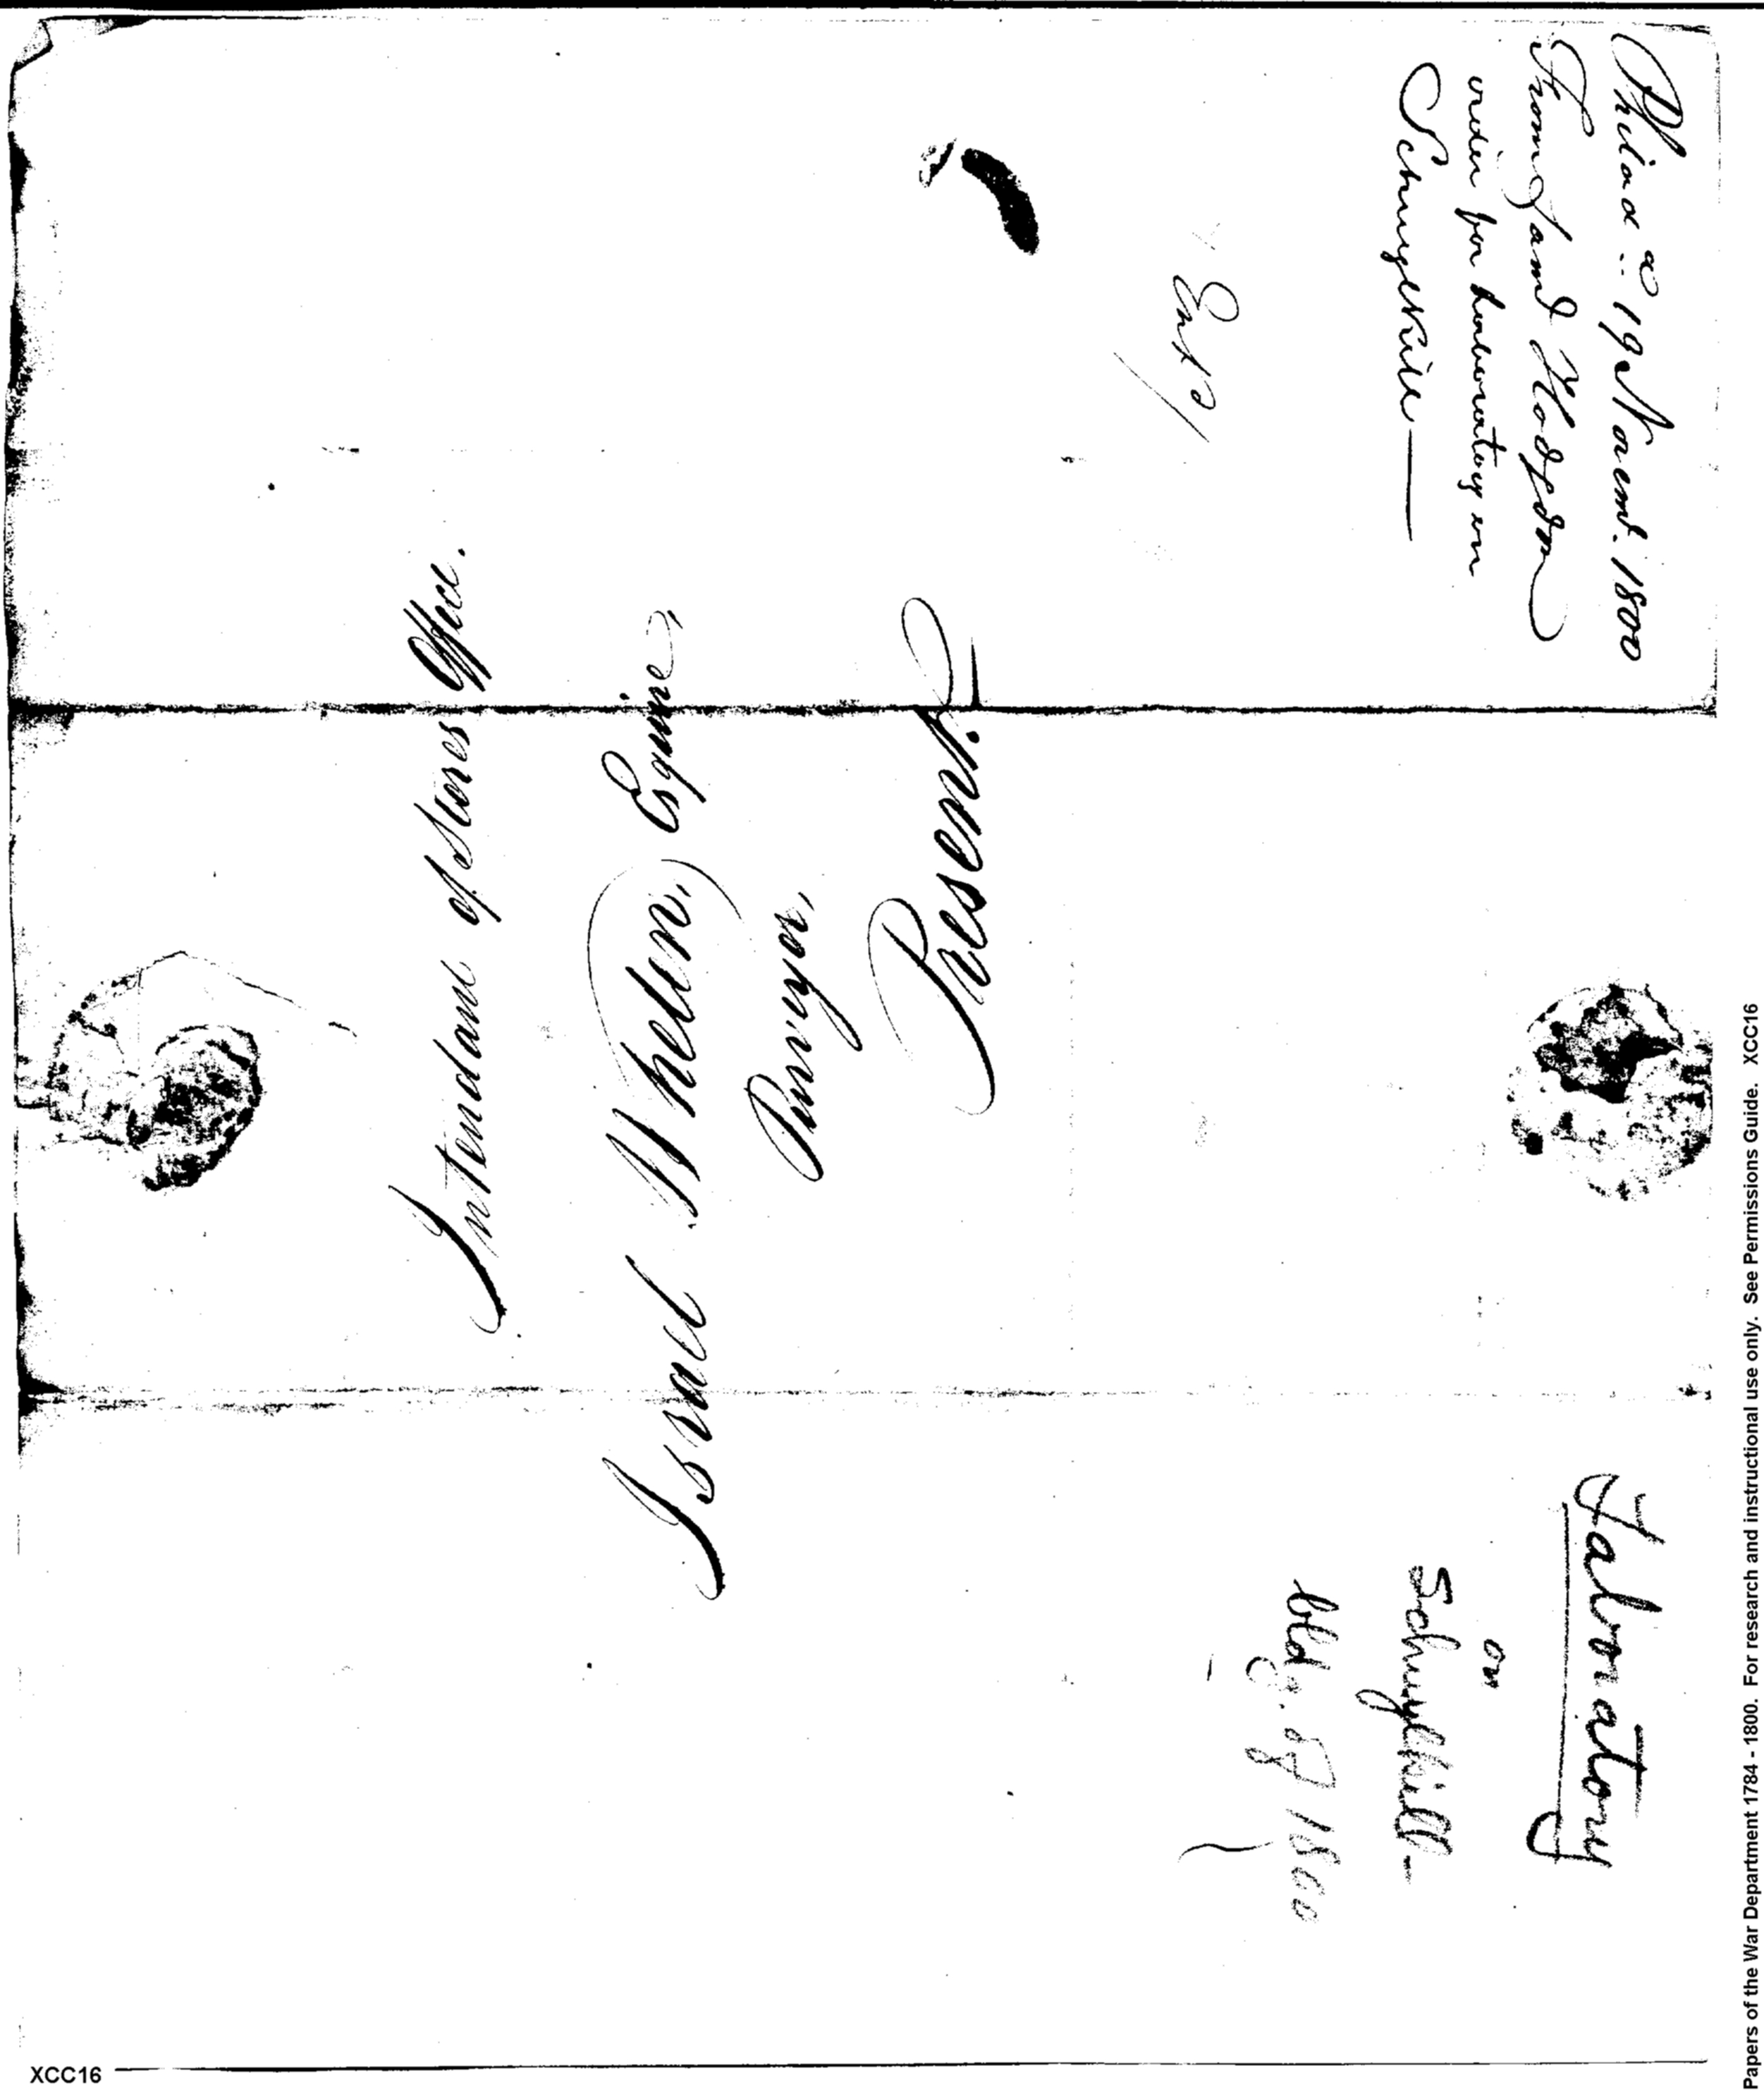 Philad a 19 Novemb. 1800
From Saml Hodgdon
order for Laboratory on
Schuylkill
Entd
Intendant of Stores Office.
Israel Whelen, Esquire,
Purveyor,
Present.
Labratory
on
Schuylkill
1800
Papers of the War Department 1784 - 1800. For research and instructional use only. See Permissions Guide. XCC16
XCC16